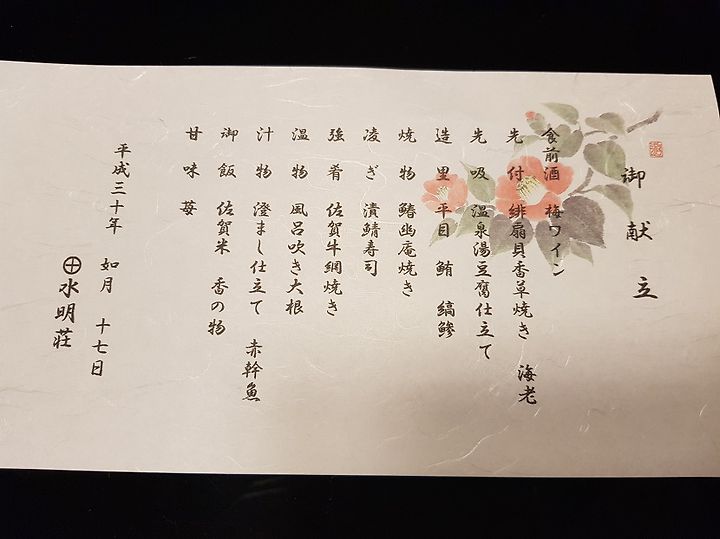 御献立
食前酒 梅ワイン
先付 緋扇貝香草焼き 海老
先吸 温泉湯豆腐仕立て
造里 平目 鮪 縞鰺
焼物 鰆幽庵焼き
凌ぎ 漬鯖寿司
強肴 佐賀牛網焼き
温物 風呂吹き大根
汁物 澄まし仕立て 赤幹魚
御飯 佐賀米 香の物
甘味 苺
平成三十年 如月 十七日
水明荘